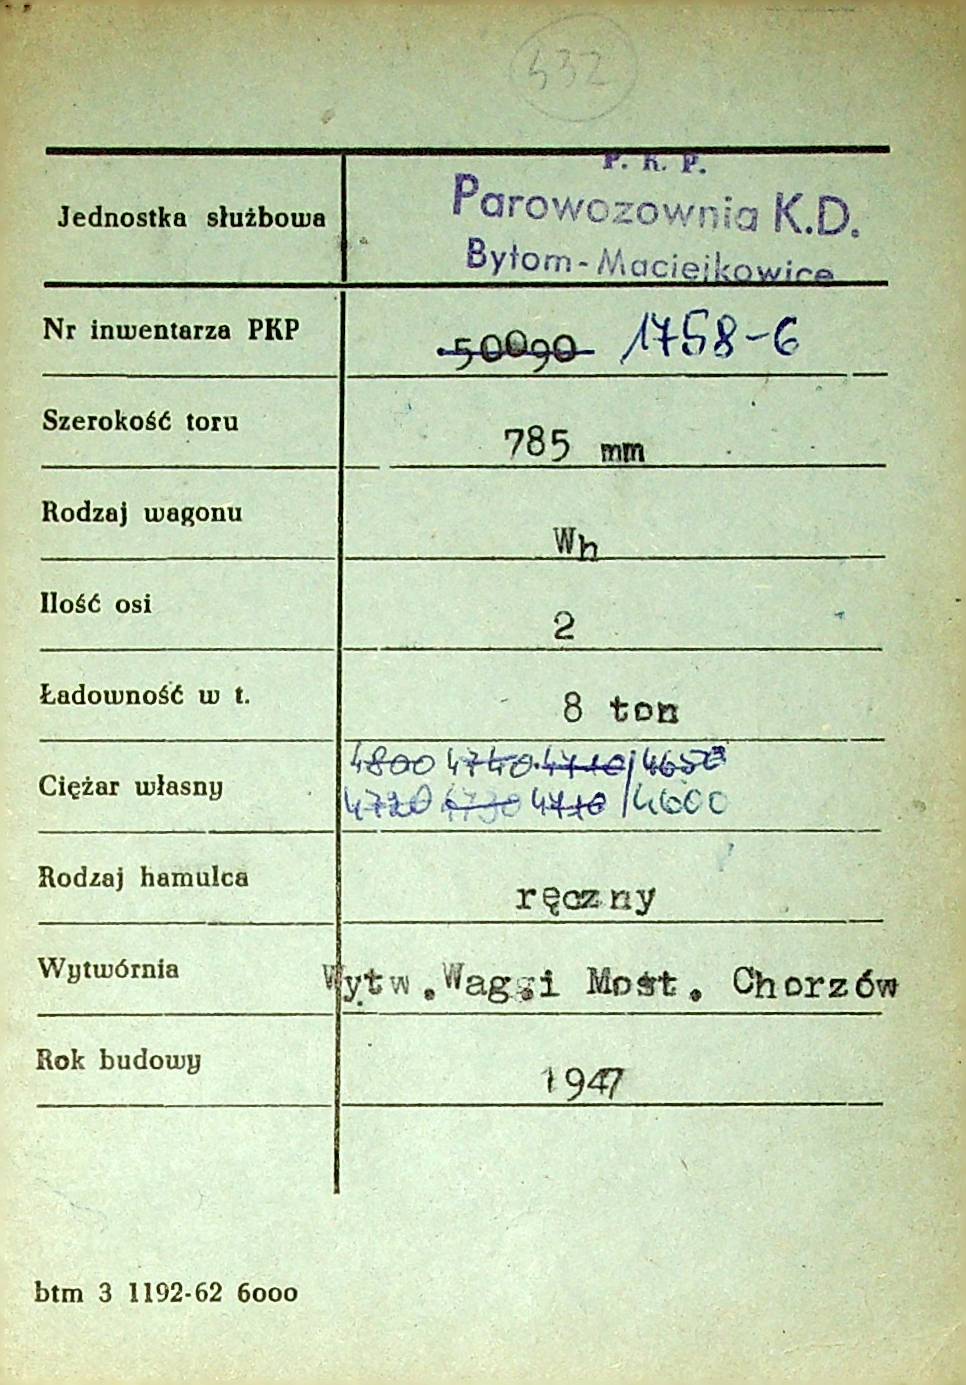 532
P. K. P.
Jednostka służbowa Parowozownia K.D.
Bytom-Maciejkowice
Nr inwentarza PKP 50090 1758-6
Szerokość toru 785 mm
Rodzaj wagonu Wh
Ilość osi 2
Ładowność w t. 8 ton
4800 4740 4710 / 4650
Ciężar własny 4720 4730 4710 / 4600
Rodzaj hamulca ręczny
Wytwórnia Wytw.Wag.i Most. Chorzów
Rok budowy 1947
btm 3 1192-62 6000